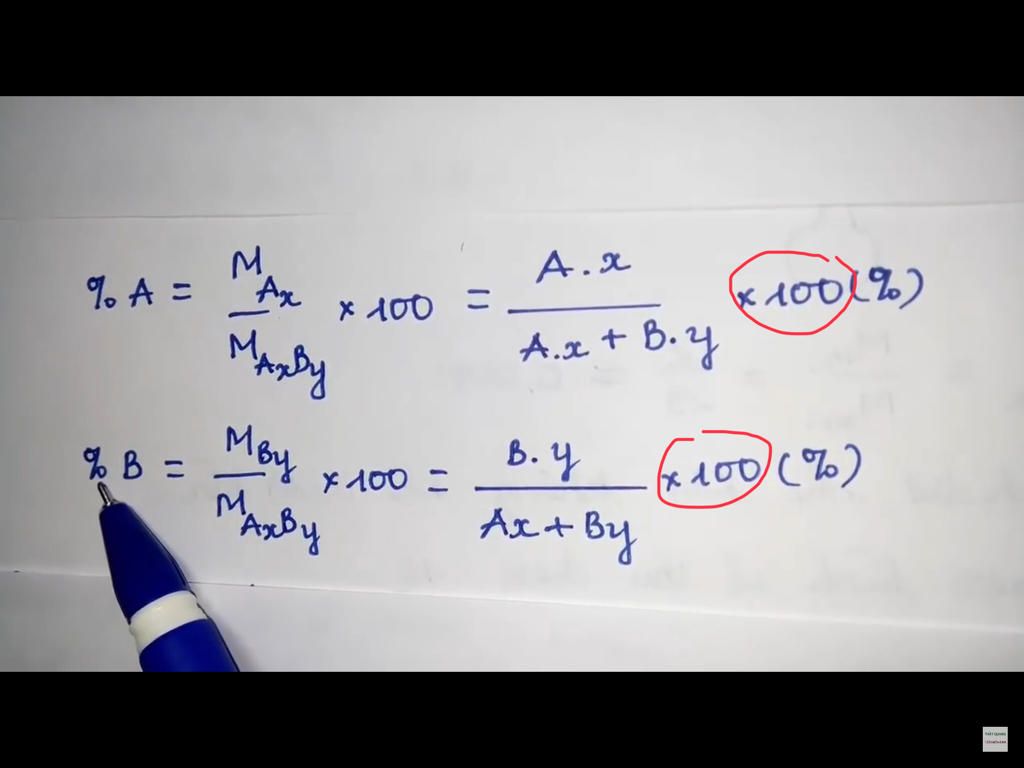 % A = M_Ax / M_AxBy × 100 = A.x / A.x + B.y × 100 (%)
% B = M_By / M_AxBy × 100 = B.y / Ax + By × 100 (%)